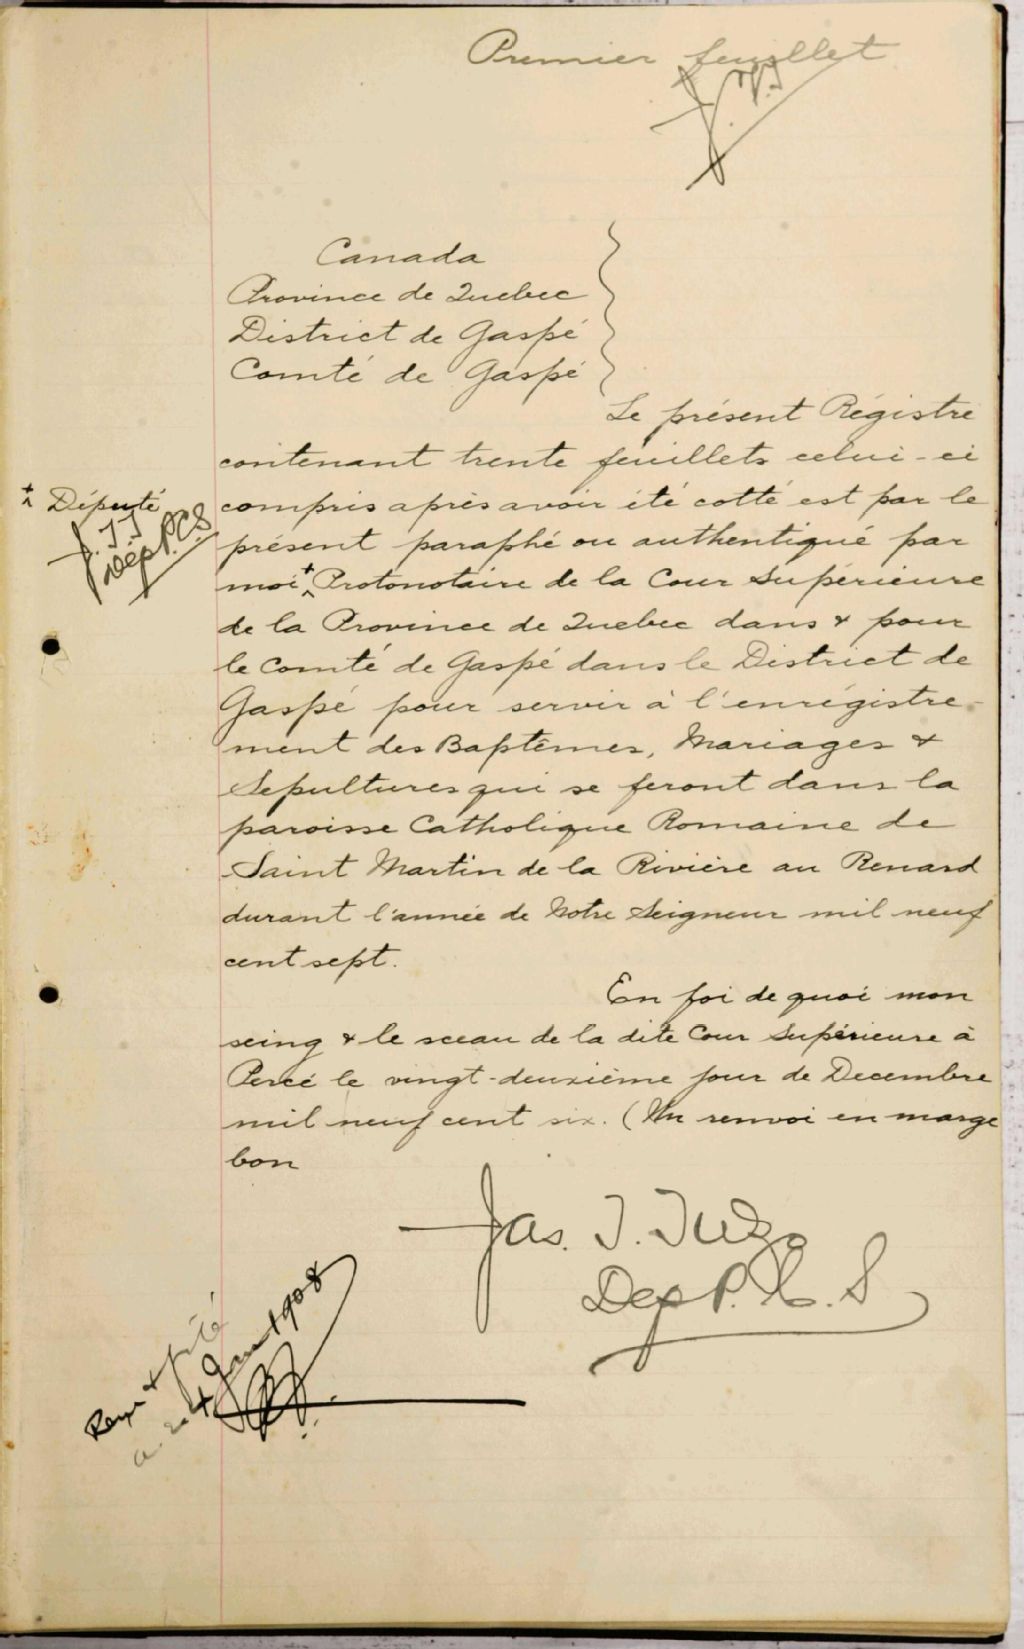 Premier feuillet
Canada
Province de Quebec
District de Gaspé
Comté de Gaspé
Le présent Régistre
contenant trente feuillets celui-ci
+ Députe
compris après avoir été cotté est par le
J. T. T
Dep P.C.S
présent paraphé ou authentiqué par
moi + Protonotaire de la Cour Supérieure
de la Province de Quebec dans & pour
le Comté de Gaspé dans le District de
Gaspé pour servir à l'enrégistre-
ment des Baptêmes, Mariages &
Sepultures qui se feront dans la
paroisse Catholique Romaine de
Saint Martin de la Rivière au Renard
durant l'année de Notre Seigneur mil neuf
cent sept.
En foi de quoi mon
seing & le sceau de la dite Cour Supérieure à
Percé le vingt-deuxième jour de Decembre
mil neuf cent six. (Un renvoi en marge
bon
Jas. T. Tuzo
Dep P. C. S
1908